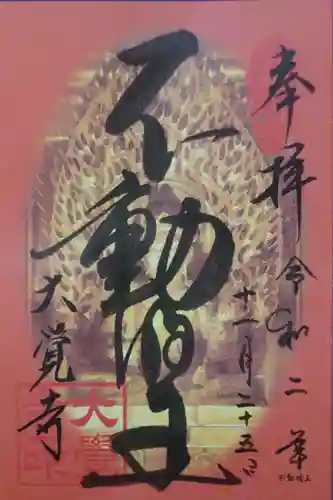 奉拝
令和二年
十一月二十五日
不動明王
大覚寺